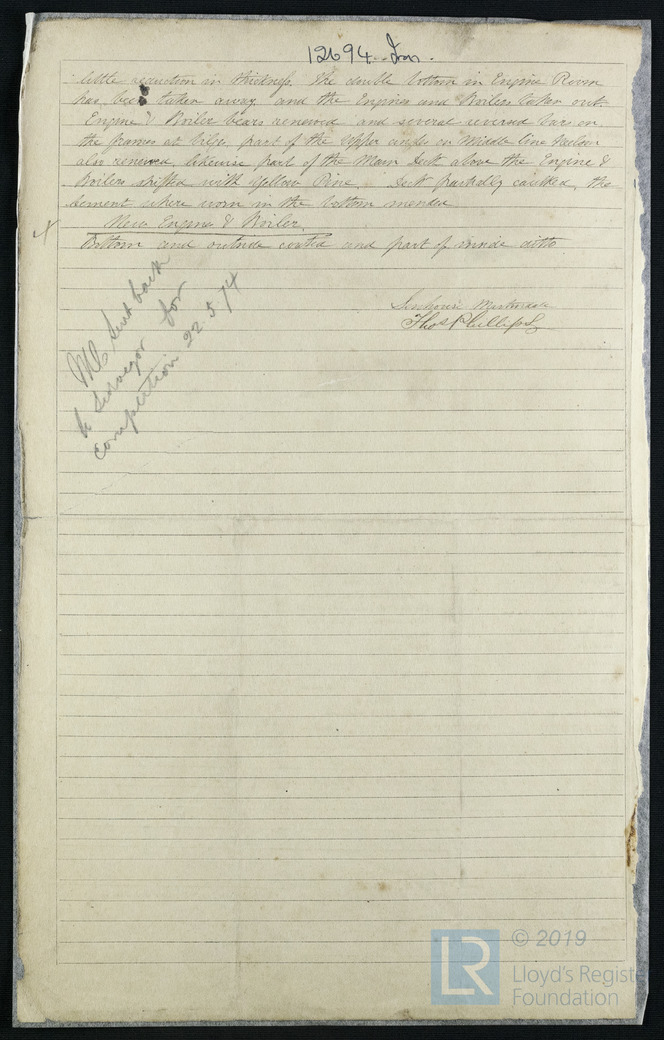 12694 Irn.
little reduction in thickness. The double bottom in Engine Room
has been taken away and the Engines and Boilers taken out.
Engine & Boiler bears renewed and several reversed bars on
the frames at bilges, part of the Upper angles on Middle line Keelson
also renewed, likewise part of the Main Deck above the Engine &
Boilers shifted with Yellow Pine. Deck partially caulked, the
cement where worn in the bottom mended
New Engines & Boiler.
Bottom and outside coated and part of inside ditto
Senhouse Martindale
Thos Phillips
Sent back
to Surveyor for
completion 22.5.74
LR © 2019
Lloyd's Register
Foundation